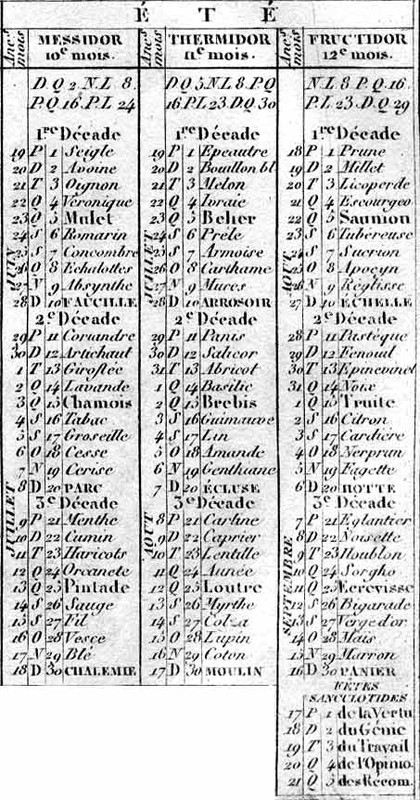 ÉTÉ
Anc.s mois
MESSIDOR
10e mois.
D.Q 2. N.L 8.
P.Q 16. P.L 24
1re Décade
JUIN
19 P 1 Seigle
20 D 2 Avoine
21 T 3 Oignon
22 Q 4 Véronique
23 Q 5 Mulet
24 S 6 Romarin
25 S 7 Concombre
26 O 8 Echalottes
27 N 9 Absynthe
28 D 10 FAUCILLE
2e Décade
29 P 11 Coriandre
30 D 12 Artichaut
1 T 13 Giroflée
2 Q 14 Lavande
3 Q 15 Chamois
4 S 16 Tabac
5 S 17 Groseille
6 O 18 Cesse
7 N 19 Cerise
8 D 20 PARC
3e Décade
JUILLET
9 P 21 Menthe
10 D 22 Cumin
11 T 23 Haricots
12 Q 24 Orcanete
13 Q 25 Pintade
14 S 26 Sauge
15 S 27 Fil
16 O 28 Vesce
17 N 29 Blé
18 D 30 CHALEMIE
Anc.s mois
THERMIDOR
11e mois.
D.Q 3. N.L 8. P.Q
16 P.L 23. D.Q 30
1re Décade
JUILLET
19 P 1 Epeautre
20 D 2 Bouillon bl
21 T 3 Melon
22 Q 4 Ivraie
23 Q 5 Belier
24 S 6 Prêle
25 S 7 Armoise
26 O 8 Carthame
27 N 9 Mures
28 D 10 ARROSOIR
2e Décade
29 P 11 Panis
30 D 12 Salicor
31 T 13 Abricot
1 Q 14 Basilic
2 Q 15 Brebis
3 S 16 Guimauve
4 S 17 Lin
5 O 18 Amande
6 N 19 Genthiane
7 D 20 ÉCLUSE
3e Décade
AOUT
8 P 21 Carline
9 D 22 Caprier
10 T 23 Lentille
11 Q 24 Aunée
12 Q 25 Loutre
13 S 26 Myrthe
14 S 27 Colza
15 O 28 Lupin
16 N 29 Coton
17 D 30 MOULIN
Anc.s mois
FRUCTIDOR
12e mois.
N.L 8 P.Q. 16.
P.L 23. D.Q 29
1re Décade
AOUT
18 P 1 Prune
19 D 2 Millet
20 T 3 Licoperde
21 Q 4 Escourgeo
22 Q 5 Saumon
23 S 6 Tubéreuse
24 S 7 Sucrion
25 O 8 Apocyn
26 N 9 Réglisse
27 D 10 ECHELLE
2e Décade
28 P 11 Pastèque
29 D 12 Fenouil
30 T 13 Epinevinet
31 Q 14 Noix
1 Q 15 Truite
2 S 16 Citron
3 S 17 Cardière
4 O 18 Nerprun
5 N 19 Tagette
6 D 20 HOTTE
3e Décade
SEPTEMBRE
7 P 21 Eglantier
8 D 22 Noisette
9 T 23 Houblon
10 Q 24 Sorgho
11 Q 25 Ecrevisse
12 S 26 Bigarade
13 S 27 Verge d'or
14 O 28 Maïs
15 N 29 Marron
16 D 30 PANIER
FÊTES
SANCULOTIDES
17 P 1 de la Vertu
18 D 2 du Génie
19 T 3 du Travail
20 Q 4 de l'Opinio.
21 Q 5 des Récom.